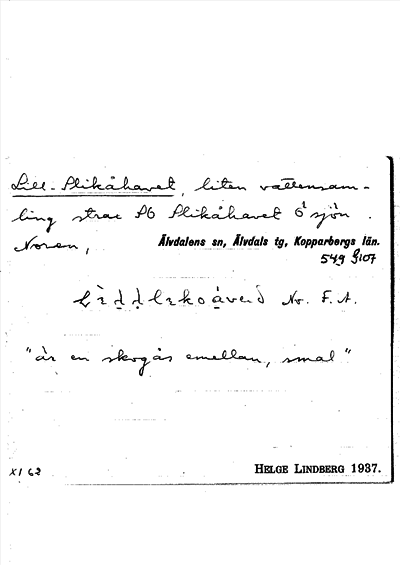 Lill-Slikåhavet, liten vattensam-
ling strax SO Slikåhavet ö sjön.
Noren,
Älvdalens sn, Älvdals tg, Kopparbergs län.
No. F. A.
"är en skogås emellan, smal"
XI 62
HELGE LINDBERG 1937.